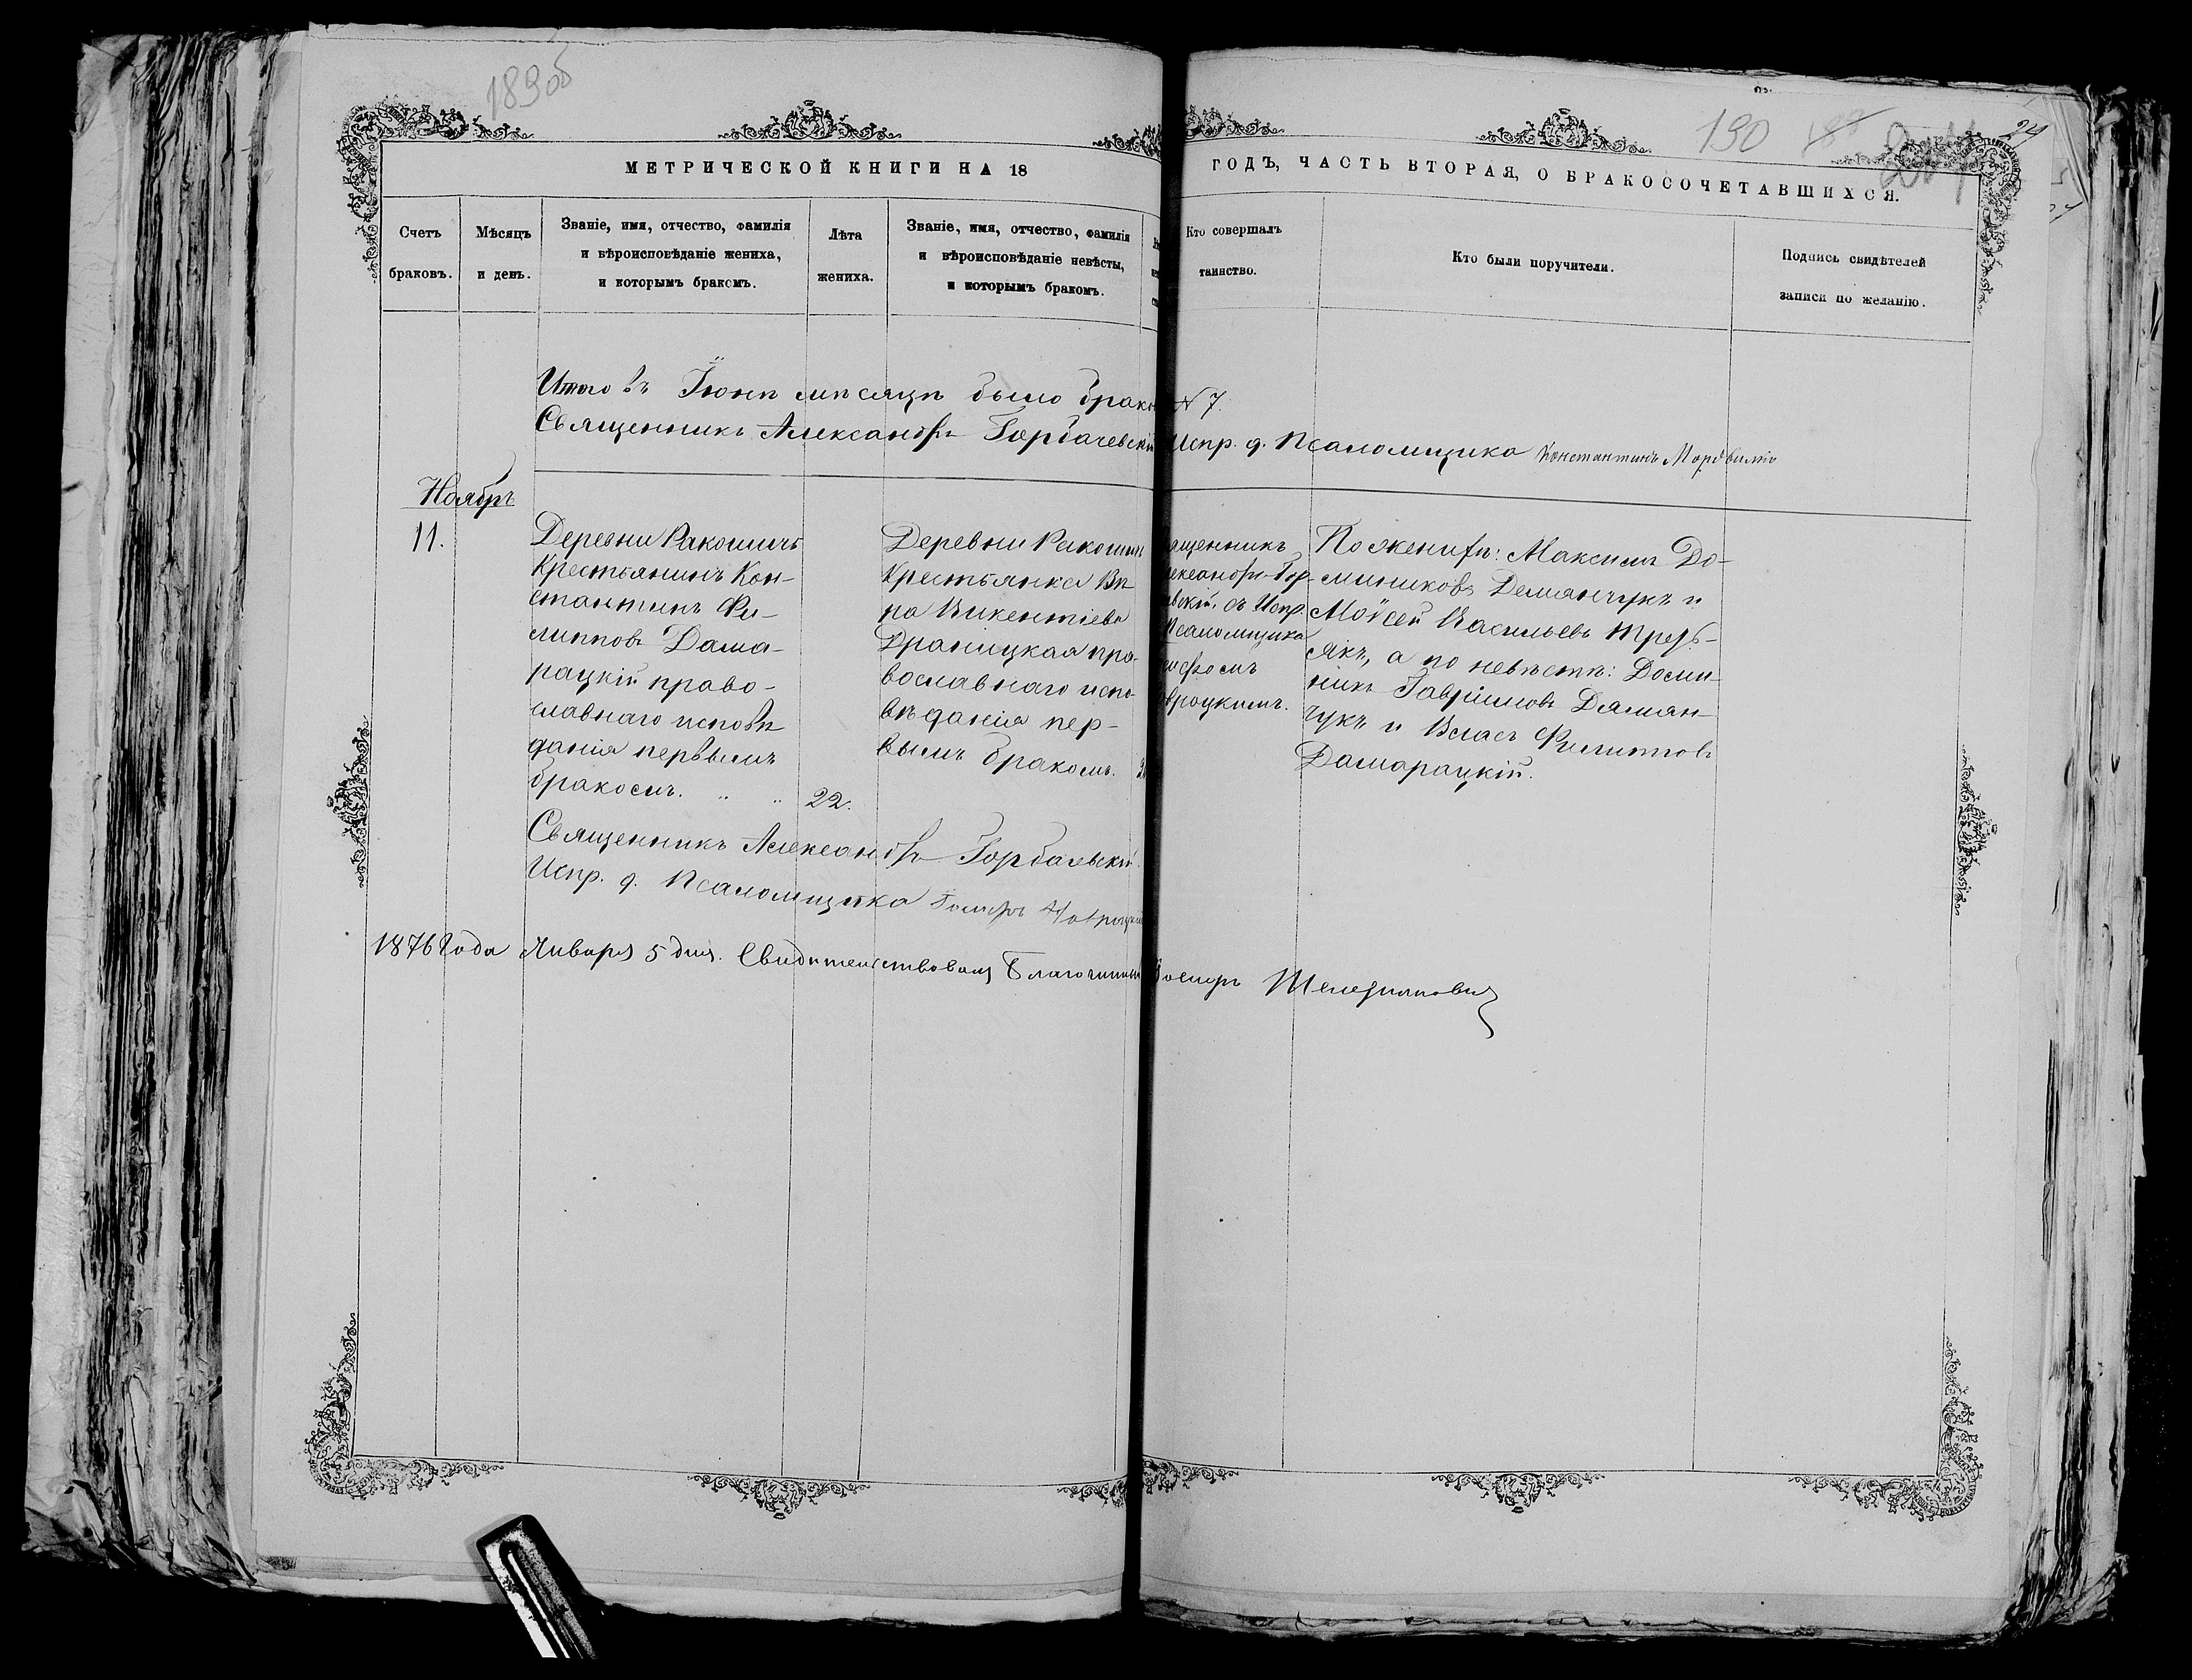 189об
190
24
МЕТРИЧЕСКОЙ КНИГИ НА 18
ГОДЪ, ЧАСТЬ ВТОРАЯ, О БРАКОСОЧЕТАВШИХСЯ.
Счетъ
браковъ.
Мѣсяцъ
и день.
Званіе, имя, отчество, фамилія
и вѣроисповѣданіе жениха,
и которымъ бракомъ.
Лѣта
жениха.
Званіе, имя, отчество, фамилія
и вѣроисповѣданіе невѣсты,
и которымъ бракомъ.
Кто совершалъ
таинство.
Кто были поручители.
Подпись свидѣтелей
записи по желанію.
Итого въ Іюнѣ мѣсяцѣ было брако № 7.
Священникъ Александръ Горбачевскій Испр. д. Псаломщика Константинъ
Ноябрь
11.
Деревни Ракошичь
Крестьянинъ Кон-
стантинъ Фи-
липповъ Дама-
рацкій право-
славнаго исповѣ
данія первымъ
бракомъ. " " 22.
Деревни Ракоши
Крестьянка Вѣ
ра Викентіева
Драницкая пра-
вославнаго испо-
вѣданія пер-
вымъ бракомъ. 2
ященникъ
лександръ Гор-
вскій, съ Испр.
Псаломщика
осифомъ
вроцкимъ.
По женихѣ: Максимъ До-
миниковъ Демянчукъ и
Моѵсей Васильевъ Трезь-
якъ, а по невѣстѣ: Доми-
никъ Гавріиловъ Дямян-
чукъ и Власъ Филипповъ
Дамарацкій.
Священникъ Александръ Горбачевскій.
Испр. д. Псаломщика Іосифъ
1876 года Января 5 дня. Свидѣтельствовалъ Благочинный Іосифъ